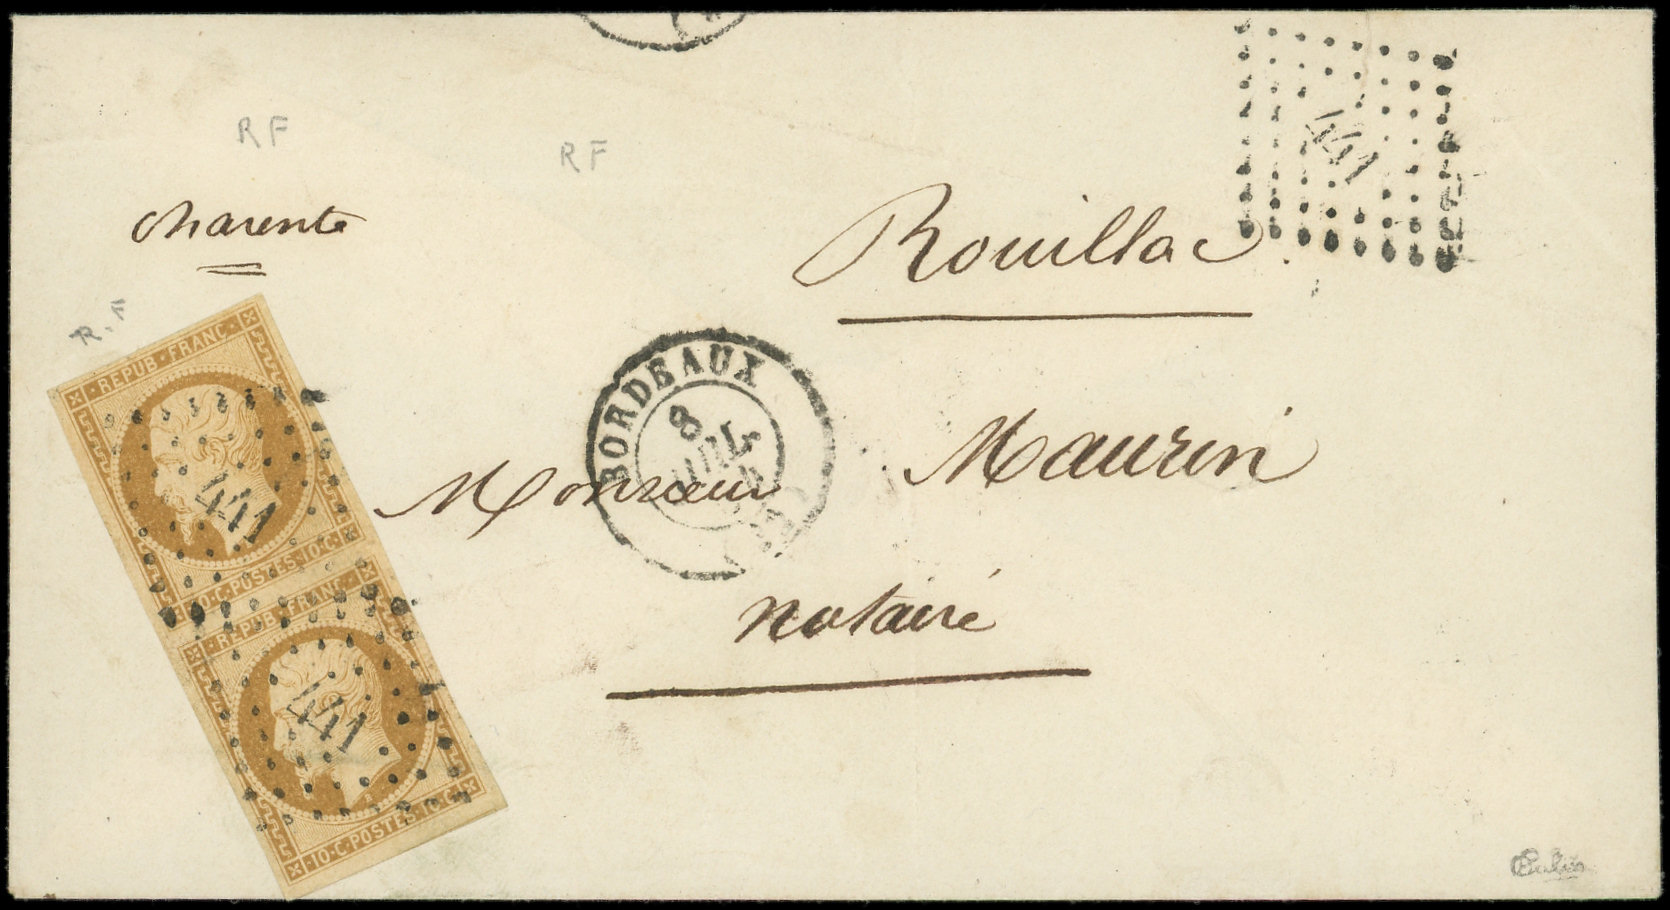 RF
RF
charente
Rouillac
441
R.F
BORDEAUX
8
JUIL
54
Monsieur Maurin
notaire
REPUB·FRANC·
441
10·C·POSTES·10·C·
REPUB·FRANC·
441
10·C·POSTES·10·C·